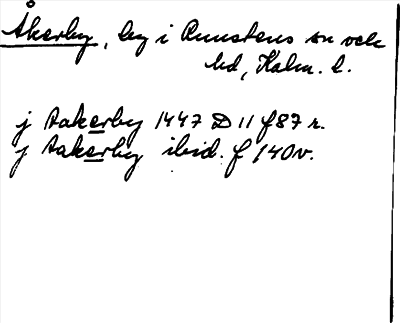 Åkerby, by i Runstens sn och
hd, Kalm. l.
j aakerby 1447 D 11 f 87 r.
j aakerby ibid. f 140 v.